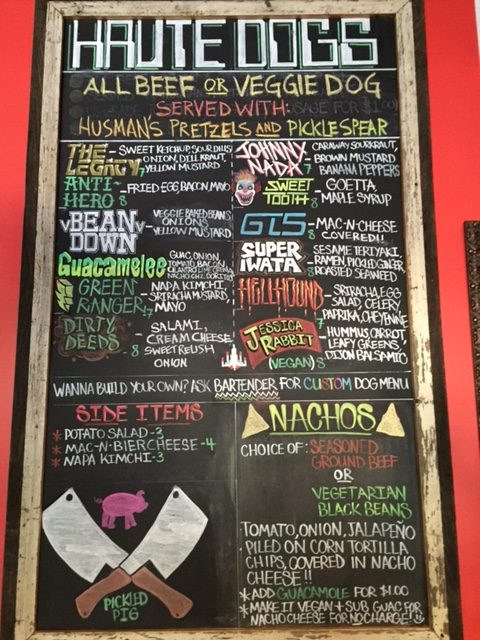 HAUTE DOGS
ALL BEEF OR VEGGIE DOG
SERVED WITH:
HUSMAN'S PRETZELS AND PICKLE SPEAR
THE LEGACY 7
- SWEET KETCHUP, SOUR DILLS
ONION, DILL KRAUT,
YELLOW MUSTARD
ANTI-HERO 8
- FRIED EGG, BACON MAYO
vBEANv DOWN
- VEGGIE BAKED BEANS
ONIONS
YELLOW MUSTARD
8
Guacamelee
GUAC, ONION,
TOMATO, BACON,
CILANTRO LIME CREMA,
NACHO CHZ, DORITOS
GREEN RANGER
NAPA KIMCHI,
SRIRACHA MUSTARD,
MAYO
7
DIRTY DEEDS
- SALAMI,
CREAM CHEESE
8 SWEET RELISH
ONION
JOHNNY NADA 7
CARAWAY SOURKRAUT,
BROWN MUSTARD
BANANA PEPPERS
SWEET TOOTH 8
- GOETTA,
MAPLE SYRUP
GTS 8
- MAC-N-CHEESE
COVERED!!
SUPER IWATA 8
SESAME TERIYAKI,
- RAMEN, PICKLED GINGER
ROASTED SEAWEED
HELLHOUND
- SRIRACHA, EGG
SALAD, CELERY
7 PAPRIKA, CHEYENNE
JESSICA RABBIT
(VEGAN) 8
HUMMUS, CARROT,
LEAFY GREENS
DIJON BALSAMIC
WANNA BUILD YOUR OWN? ASK BARTENDER FOR CUSTOM DOG MENU
SIDE ITEMS
* POTATO SALAD - 3
* MAC-N-BIER CHEESE - 4
* NAPA KIMCHI - 3
PICKLED PIG
NACHOS
CHOICE OF: SEASONED
GROUND BEEF
OR
VEGETARIAN
BLACK BEANS
TOMATO, ONION, JALAPEÑO
PILED ON CORN TORTILLA
CHIPS, COVERED IN NACHO
CHEESE!!
* ADD GUACAMOLE FOR $1.00
* MAKE IT VEGAN & SUB GUAC FOR
NACHO CHEESE FOR NO CHARGE!